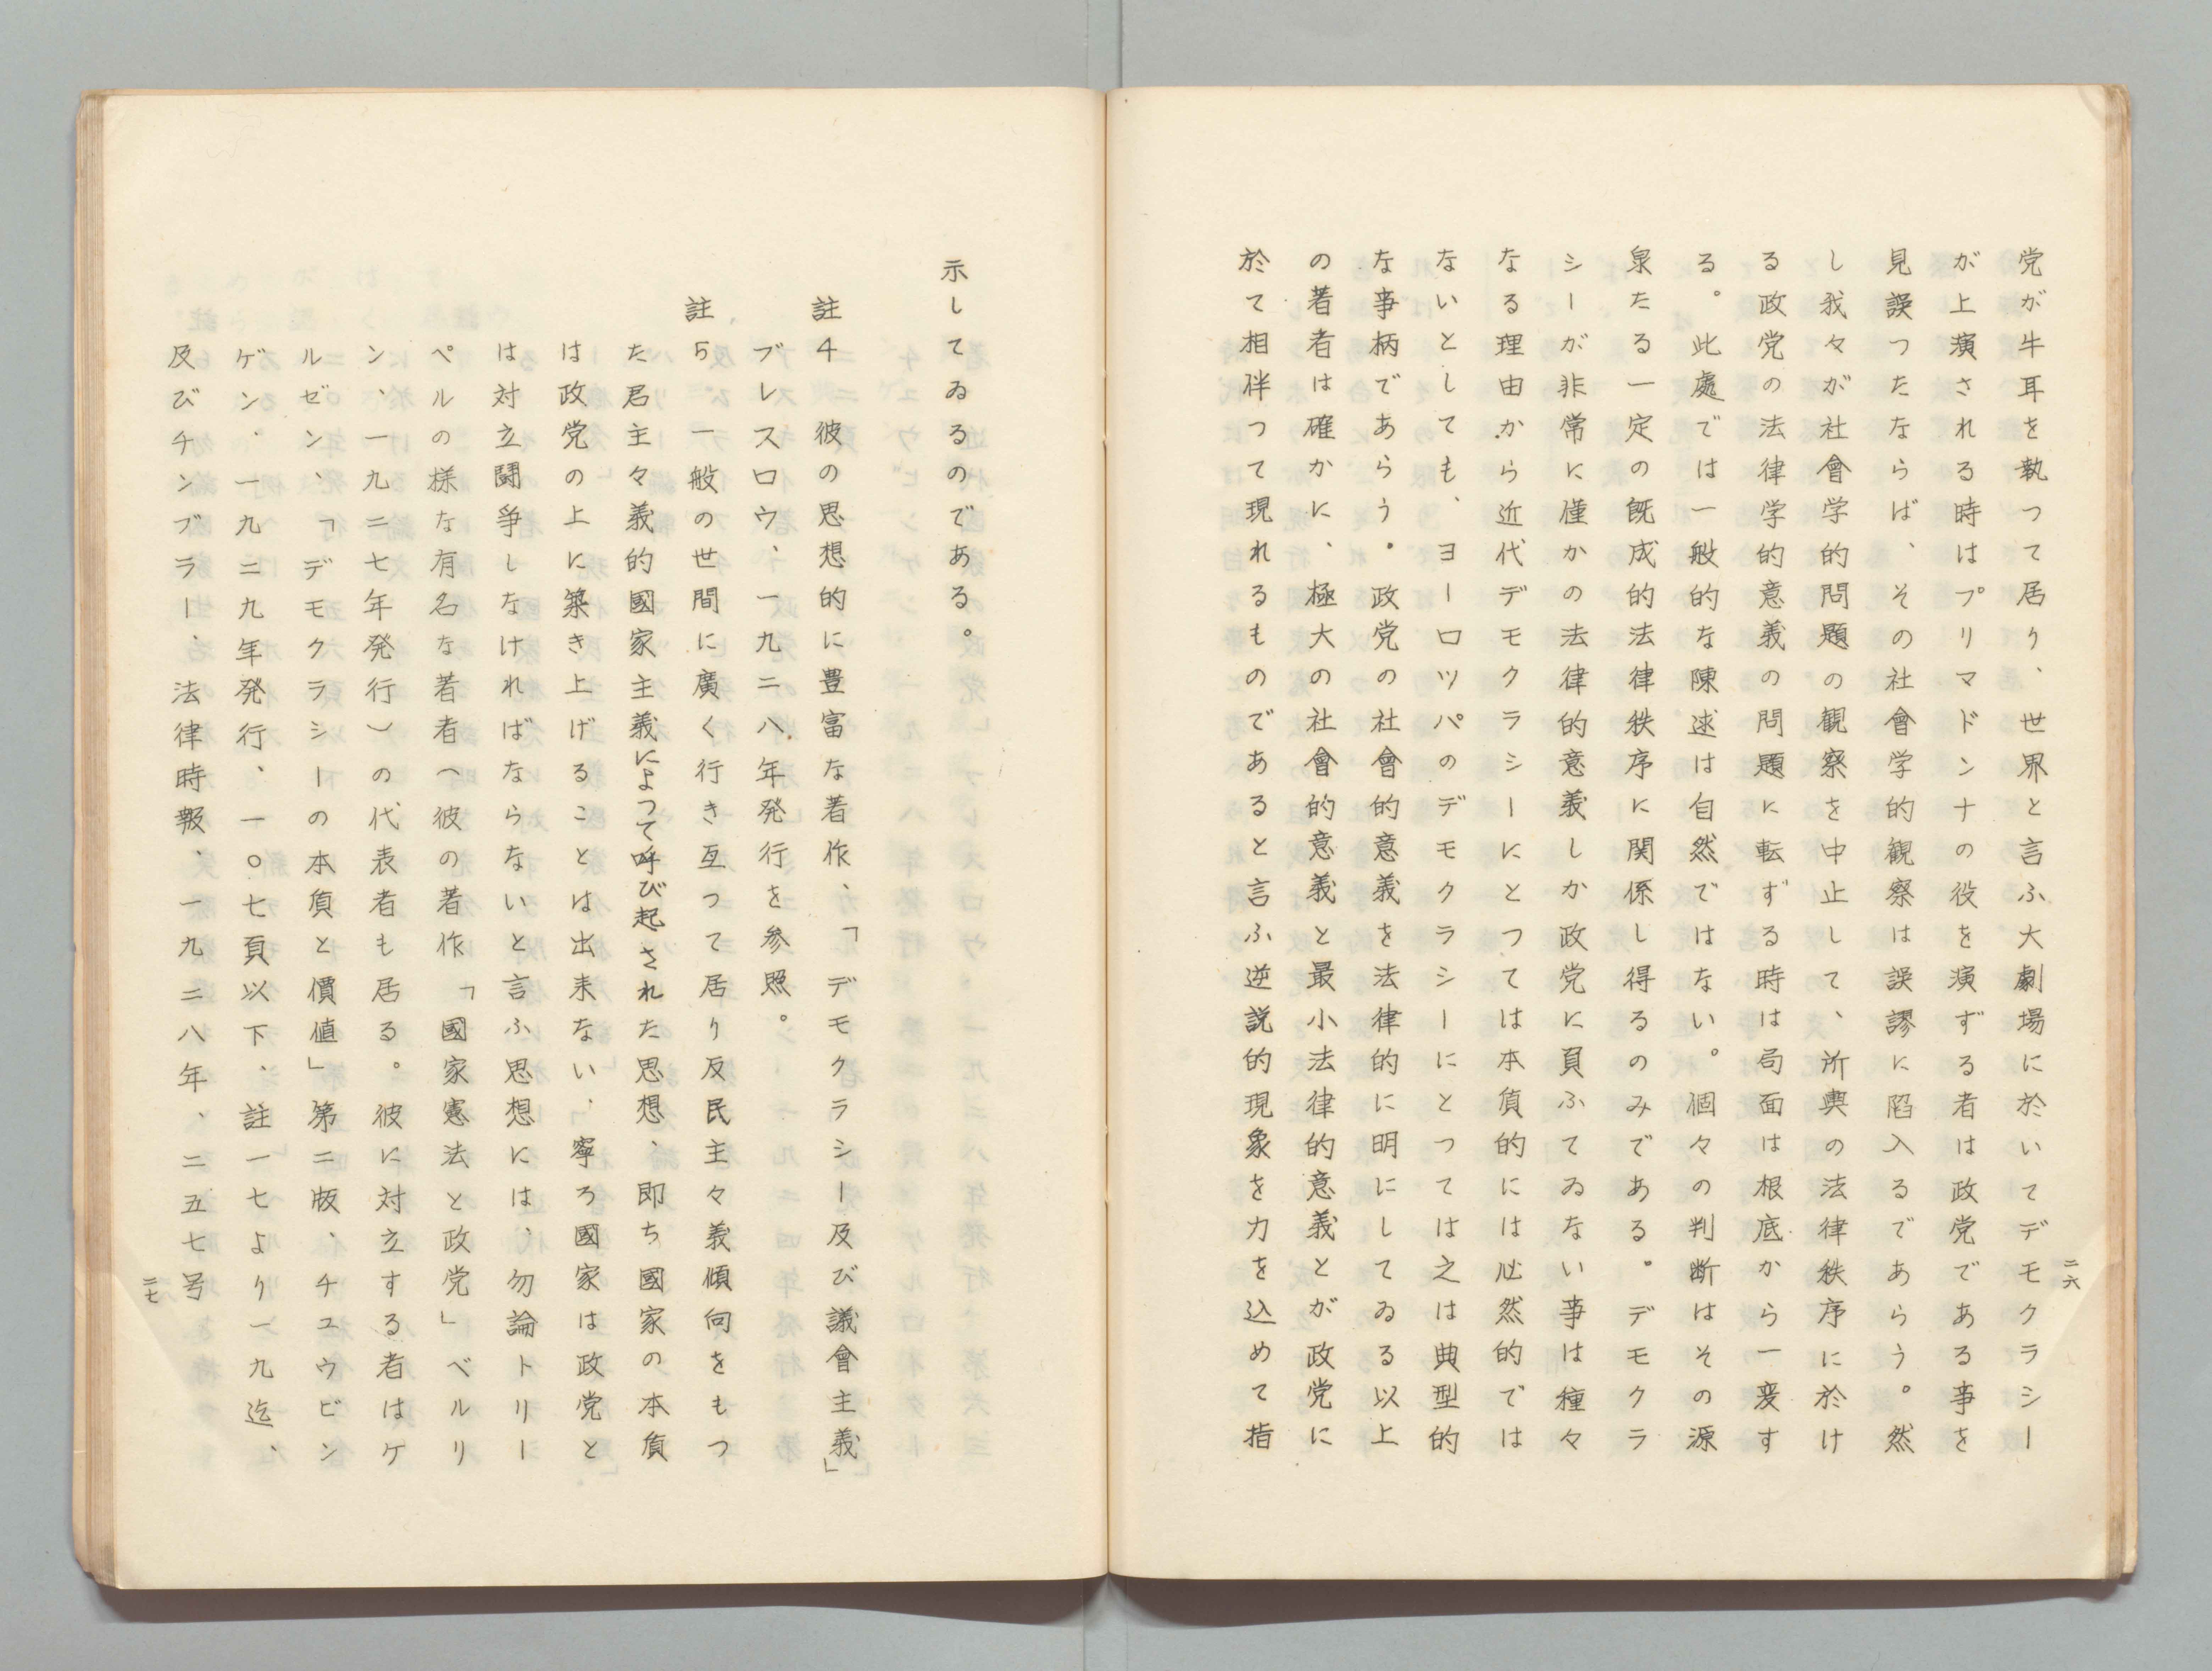 党が牛耳を執つて居り、世界と言ふ大劇場に於いてデモクラシー
が上演される時はプリマドンナの役を演ずる者は政党である事を
見誤つたならば、その社會学的観察は誤謬に陷入るであらう。然
し我々が社會学的問題の観察を中止して、所與の法律秩序に於け
る政党の法律学的意義の問題に転ずる時は局面は根底から一変す
る。此處では一般的な陳述は自然ではない。個々の判断はその源
泉たる一定の既成的法律秩序に関係し得るのみである。デモクラ
シーが非常に僅かの法律的意義しか政党に負ふてゐない事は種々
なる理由から近代デモクラシーにとつては本質的には必然的では
ないとしても、ヨーロツパのデモクラシーにとつては之は典型的
な事柄であらう。政党の社會的意義を法律的に明にしてゐる以上
の著者は確かに、極大の社會的意義と最小法律的意義とが政党に
於て相伴つて現れるものであると言ふ逆説的現象を力を込めて指
二六
示してゐるのである。
註4 彼の思想的に豊富な著作、「デモクラシー及び議會主義」
ブレスロウ、一九二八年発行を参照。
註5 一般の世間に廣く行き亙つて居り反民主々義傾向をもつ
た君主々義的國家主義によつて呼び起された思想、即ち國家の本質
は政党の上に築き上げることは出来ない、寧ろ國家は政党と
は対立闘争しなければならないと言ふ思想には、勿論トリー
ペルの様な有名な著者(彼の著作「國家憲法と政党」ベルリ
ン、一九二七年発行)の代表者も居る。彼に対立する者はケ
ルゼン、「デモクラシーの本質と價値」第二版、チユウビン
ゲン、一九二九年発行、一〇七頁以下、註一七より一九迄、
及びチンブラー、法律時報、一九二八年、二五七号
二七